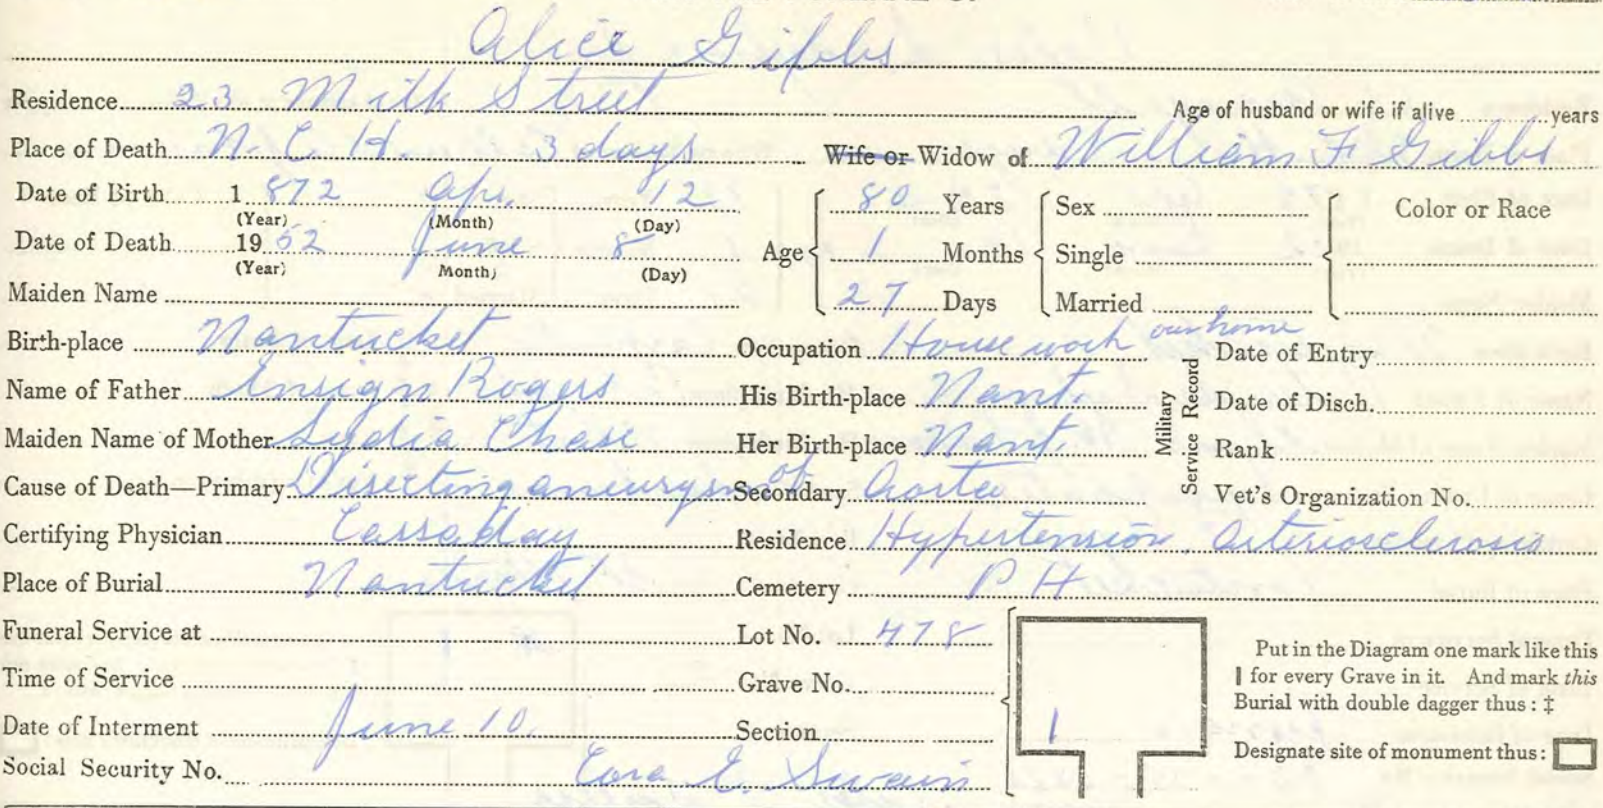 Alice Gibbs
Residence 23 Milk Street Age of husband or wife if alive years
Place of Death N. C. H. 3 days Wife or Widow of William F Gibbs
Date of Birth 1 872 Apr. 12
(Year) (Month) (Day)
Date of Death 19 52 June 8
(Year) Month) (Day)
Age 80 Years
1 Months
27 Days
Sex
Single
Married
Color or Race
Maiden Name
Birth-place Nantucket Occupation House work own home
Name of Father Ensign Rogers His Birth-place Nant.
Maiden Name of Mother Lydia Chase Her Birth-place Nant.
Military Service Record
Date of Entry
Date of Disch.
Rank
Vet's Organization No.
Cause of Death—Primary Disecting aneurysm of Secondary Aorta
Certifying Physician Cassaday Residence Hypertension Arteriosclerosis
Place of Burial Nantucket Cemetery P H
Funeral Service at Lot No. 478
Time of Service Grave No.
Date of Interment June 10. Section
Social Security No. Cora E. Swain
Put in the Diagram one mark like this
| for every Grave in it. And mark this
Burial with double dagger thus : ‡
Designate site of monument thus :